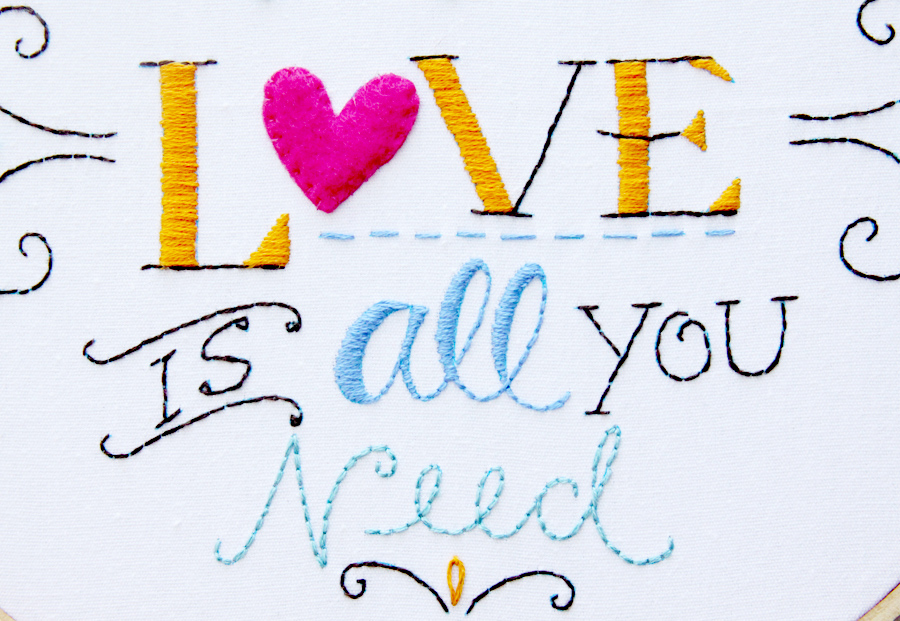 LOVE
IS all YOU
Need